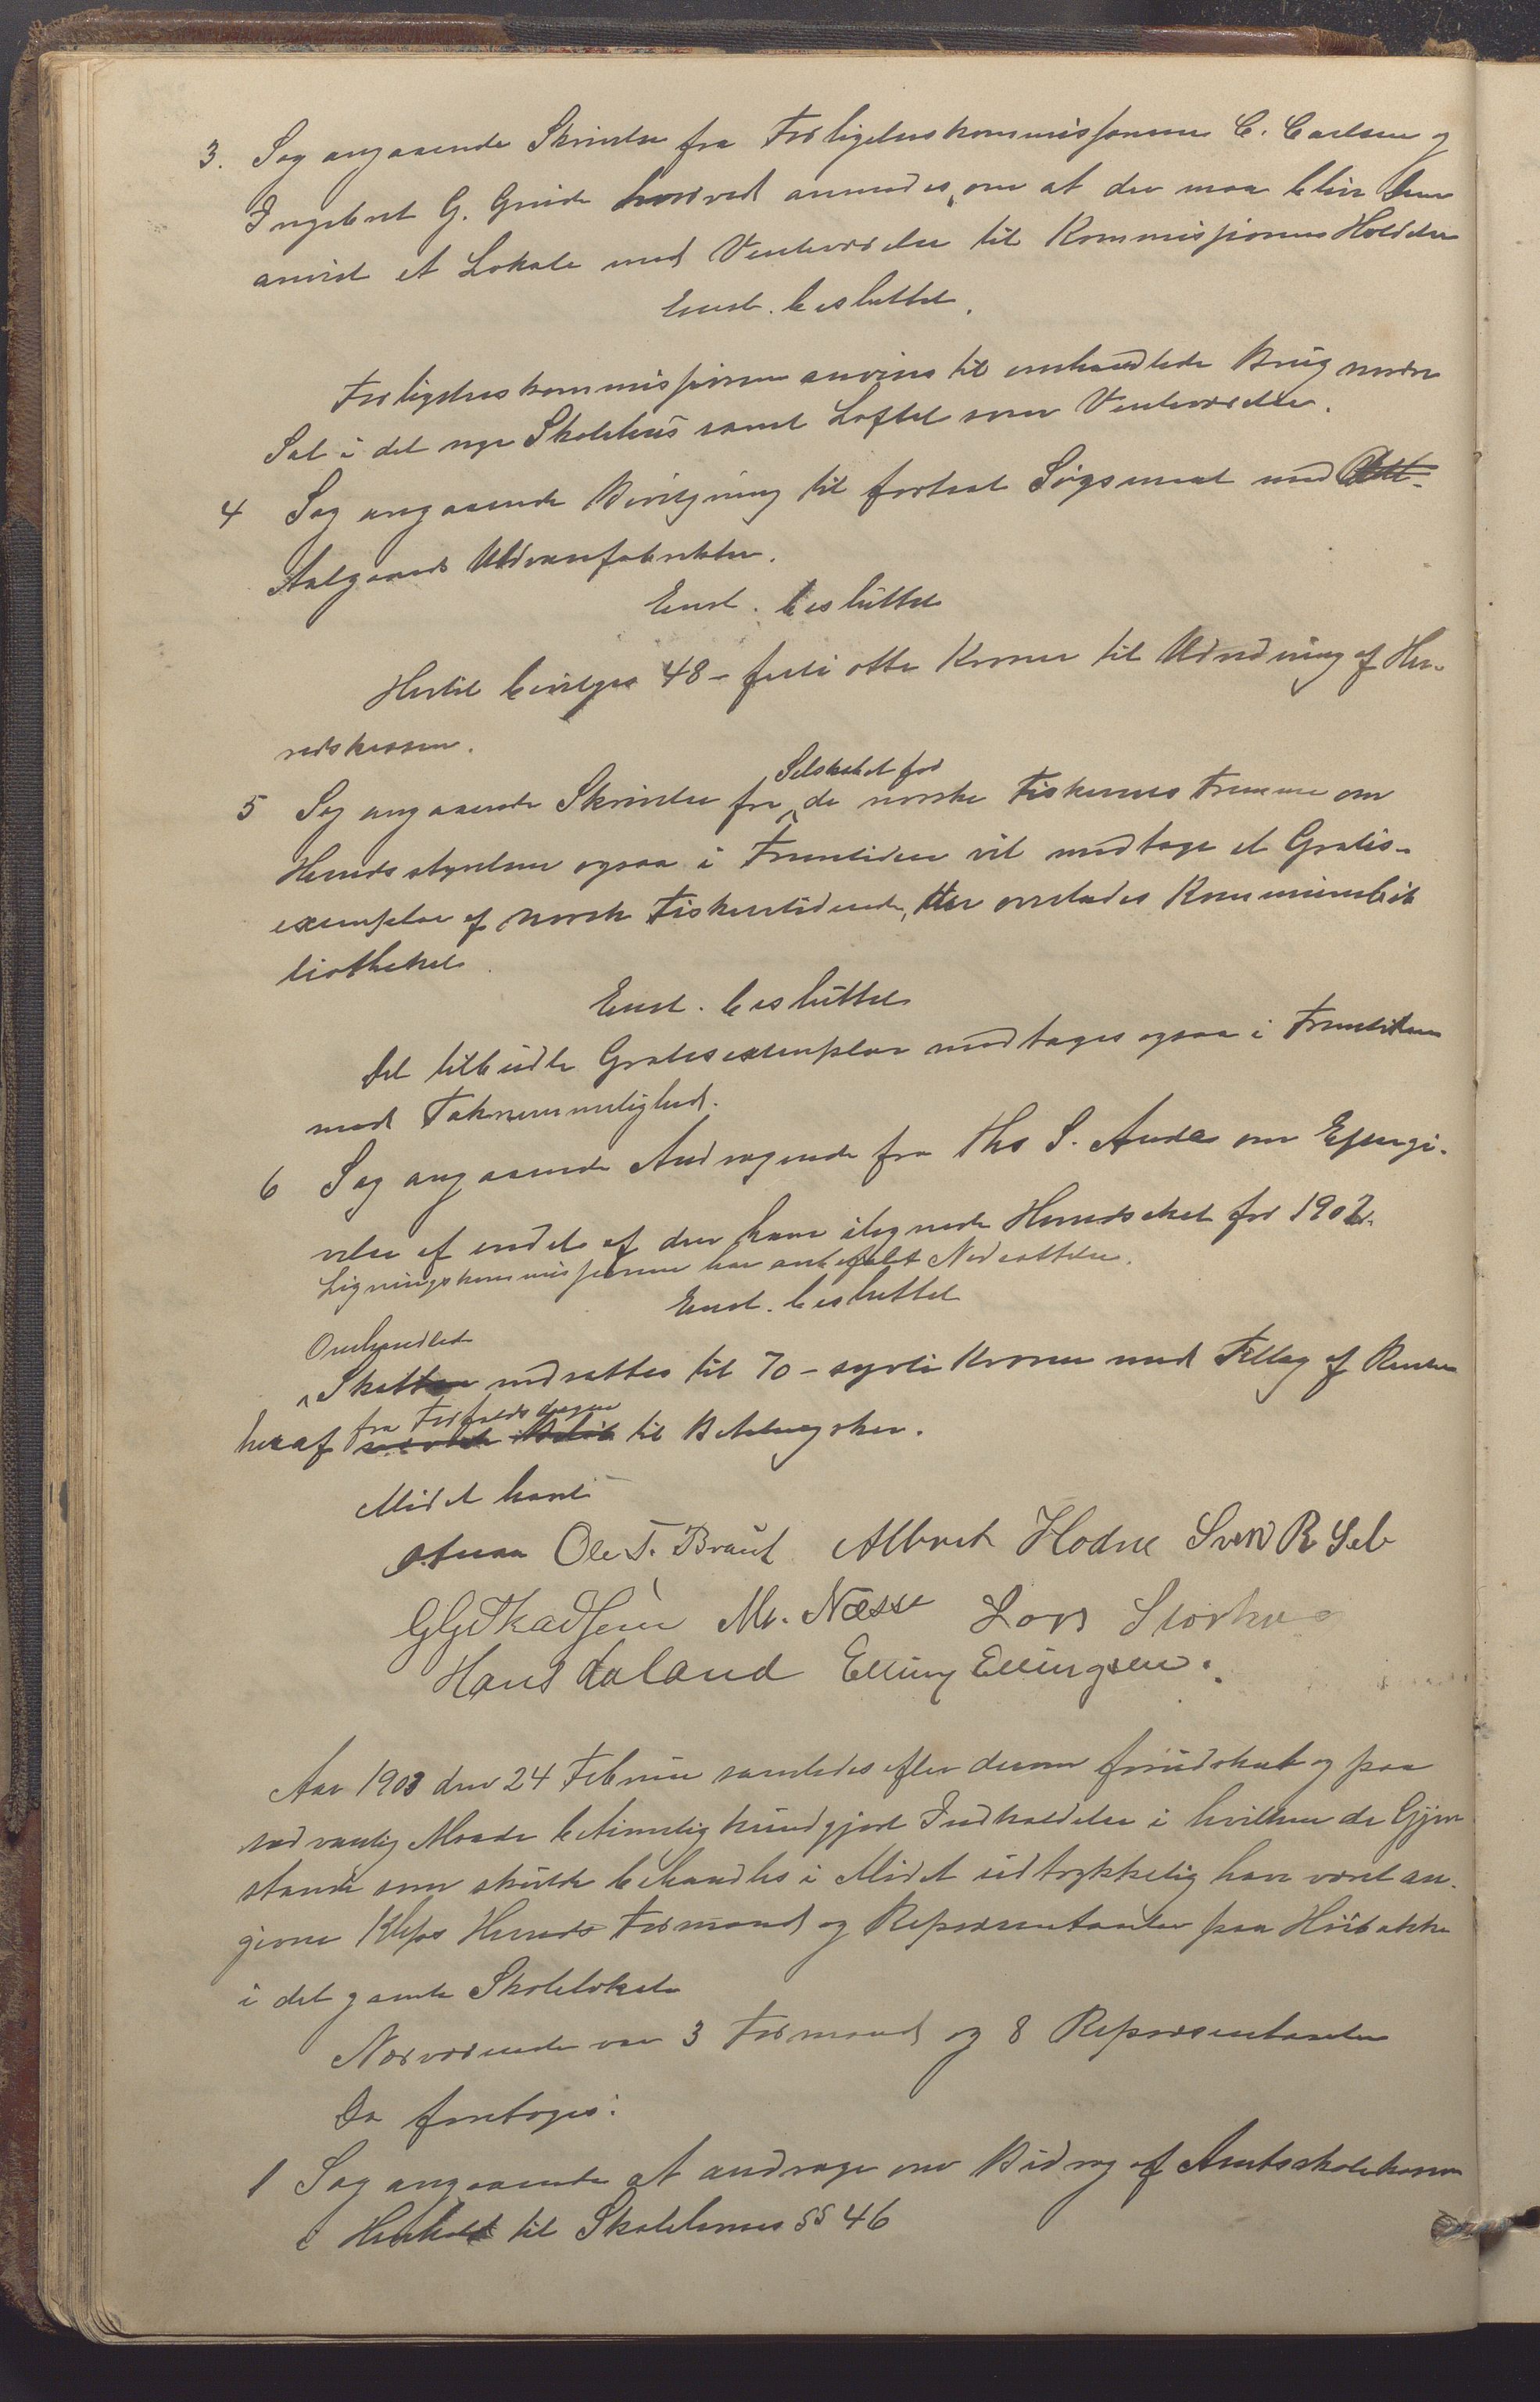 3. Sag angaaende Skrivelse fra Forligelseskommissionen C. Carlsen og
Ingebret G. Grude hvorved anmodes om at der maa blive dem
anvist et Lokale med Venteværelse til Kommissionens Holdelse
Enst. besluttet.
Forligelseskommissionen anvises til omhandlede Brug nordre
Sal i det nye Skolehus samt Loftet som Venteværelse.
4 Sag angaaende Bevilgning til fortsat Søgsmaal mod
Aalgaards Uldvarefabrikker.
Enst. besluttet
Hertil bevilges 48 - førti otte Kroner til Udredning af Her-
redskassen.
5 Sag angaaende Skrivelse fra Selskabet for de norske Fiskeriers Fremme om
Herredsstyrelsen ogsaa i Fremtiden vil modtage et Gratis-
exemplar af norsk Fiskeritidende, der overlades Kommunebib
liotheket.
Enst. besluttet
Det tilbudte Gratisexemplar modtages ogsaa i Fremtiden
med Taknemmelighed.
6 Sag angaaende Andragende fra Ths S. Anda om Eftergi-
velse af endel af den ham ilignede Herredsskat for 1902.
Ligningskommissionen har anbefalet Nedsættelse.
Enst. besluttet
Omhandlede
Skat nedsættes til 70 - sytti Kroner med Tillæg af Renter
heraf fra Forfaldsdagen til Betaling sker.
Mødet hævet
Ole T. Braut Albret Hodne Sven R Sele
M. Næsse Lars Storhaug
Hans Laland Elling Ellingsen.
Aar 1903 den 24 Februar samledes efter derom forudskut og paa
sædvanlig Maade betimelig kundgjort Indkaldelse i hvilken de Gjen
stande som skulde behandles i Mødet udtrykkelig have været an-
givne Kleps Herreds Formænd og Repræsentanter paa Husbakke
i det gamle Skolelokale
Nærværende var 3 Formænd og 8 Repræsentanter
Da foretoges:
1 Sag angaaende at andrage om Bidrag af Amtsskolekassen
i Henhold til Skolelovens §§ 46